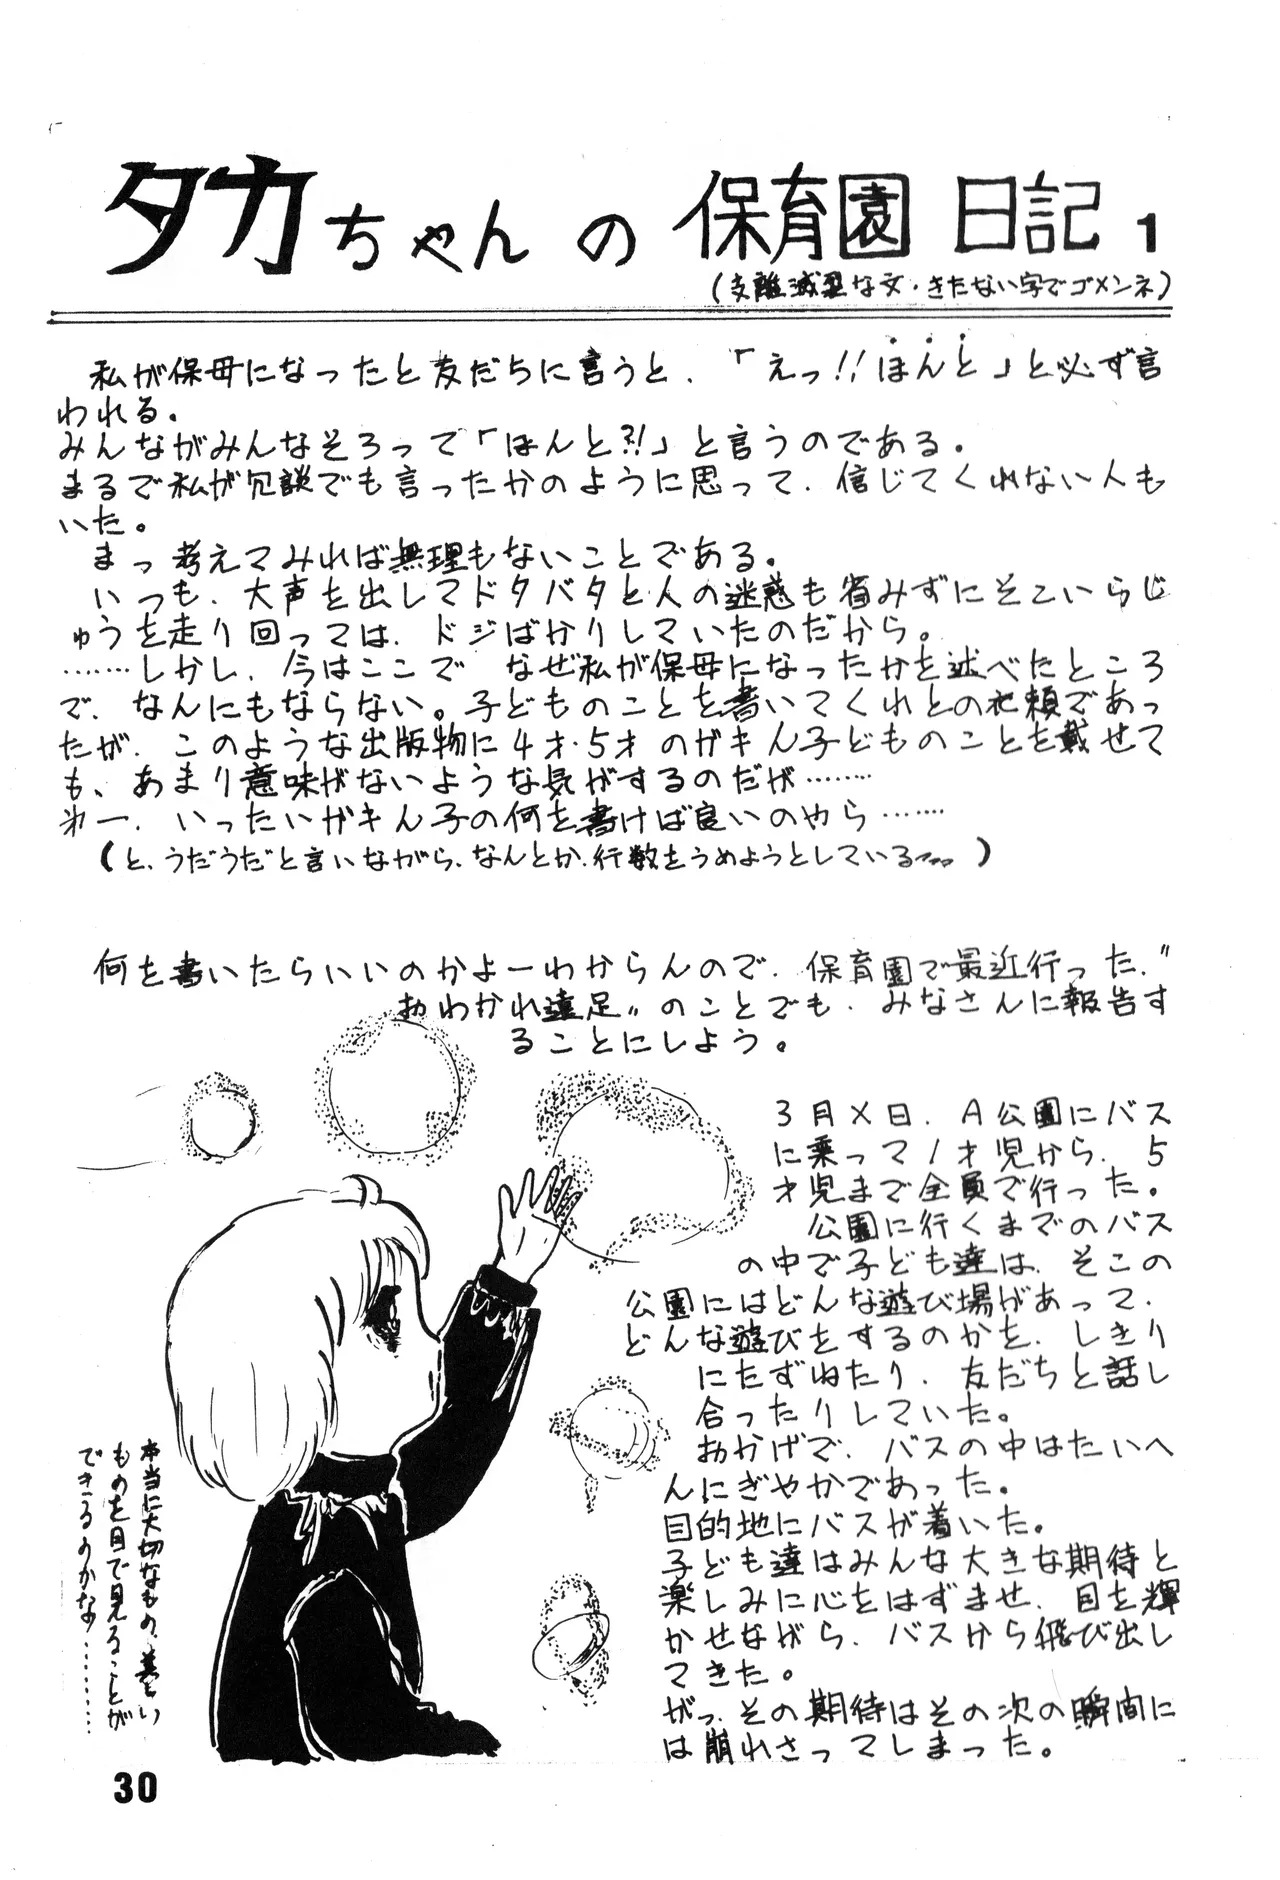 タカちゃんの保育園日記 1
(支離滅裂な文・きたない字でゴメンネ)
私が保母になったと友だちに言うと、「えっ!!ほんと」と必ず言
われる。
みんながみんなそろって「ほんと?!」と言うのである。
まるで私が冗談でも言ったかのように思って、信じてくれない人も
いた。
まっ考えてみれば無理もないことである。
いつも、大声を出してドタバタと人の迷惑も省みずにそこいらじ
ゅうを走り回っては、ドジばかりしていたのだから。
……しかし、今はここで なぜ私が保母になったかを述べたところ
で、なんにもならない。子どものことを書いてくれとの依頼であっ
たが、このような出版物に4才・5才のガキん子どものことを載せて
も、あまり意味がないような気がするのだが……
わー、いったいガキん子の何を書けば良いのやら……
(と、うだうだと言いながら、なんとか、行数をうめようとしている)
何を書いたらいいのかよーわからんので、保育園で最近行った、〃
おわかれ遠足〃のことでも、みなさんに報告す
ることにしよう。
3月X日、A公園にバス
に乗って1才児から、5
才児まで全員で行った。
公園に行くまでのバス
の中で子ども達は、そこの
公園にはどんな遊び場があって、
どんな遊びをするのかを、しきり
にたずねたり、友だちと話し
合ったりしていた。
おかげで、バスの中はたいへ
んにぎやかであった。
目的地にバスが着いた。
子ども達はみんな大きな期待と
楽しみに心をはずませ、目を輝
かせながら、バスから飛び出し
てきた。
がっ、その期待はその次の瞬間に
は崩れさってしまった。
本当に大切なもの、美しい
ものを目で見ることが
できるのかな………
30